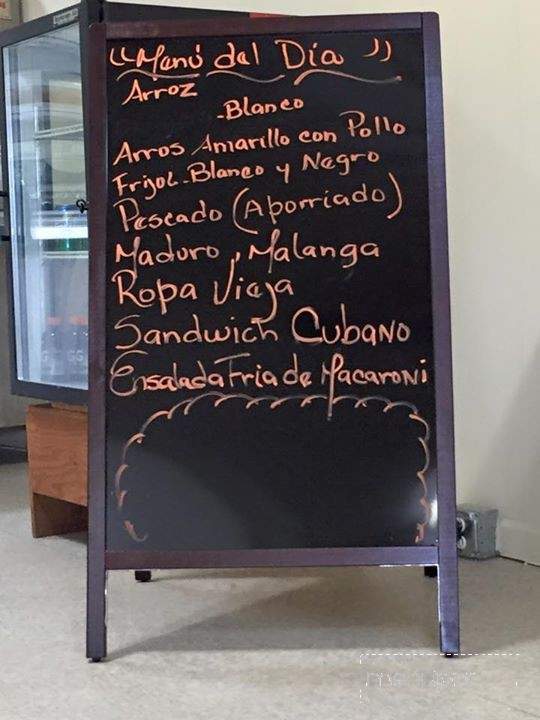 "Menú del Día"
Arroz
-Blanco
Arros Amarillo con Pollo
Frijol-Blanco y Negro
Pescado (Aporriado)
Maduro, Malanga
Ropa Vieja
Sandwich Cubano
Ensalada Fria de Macaroni